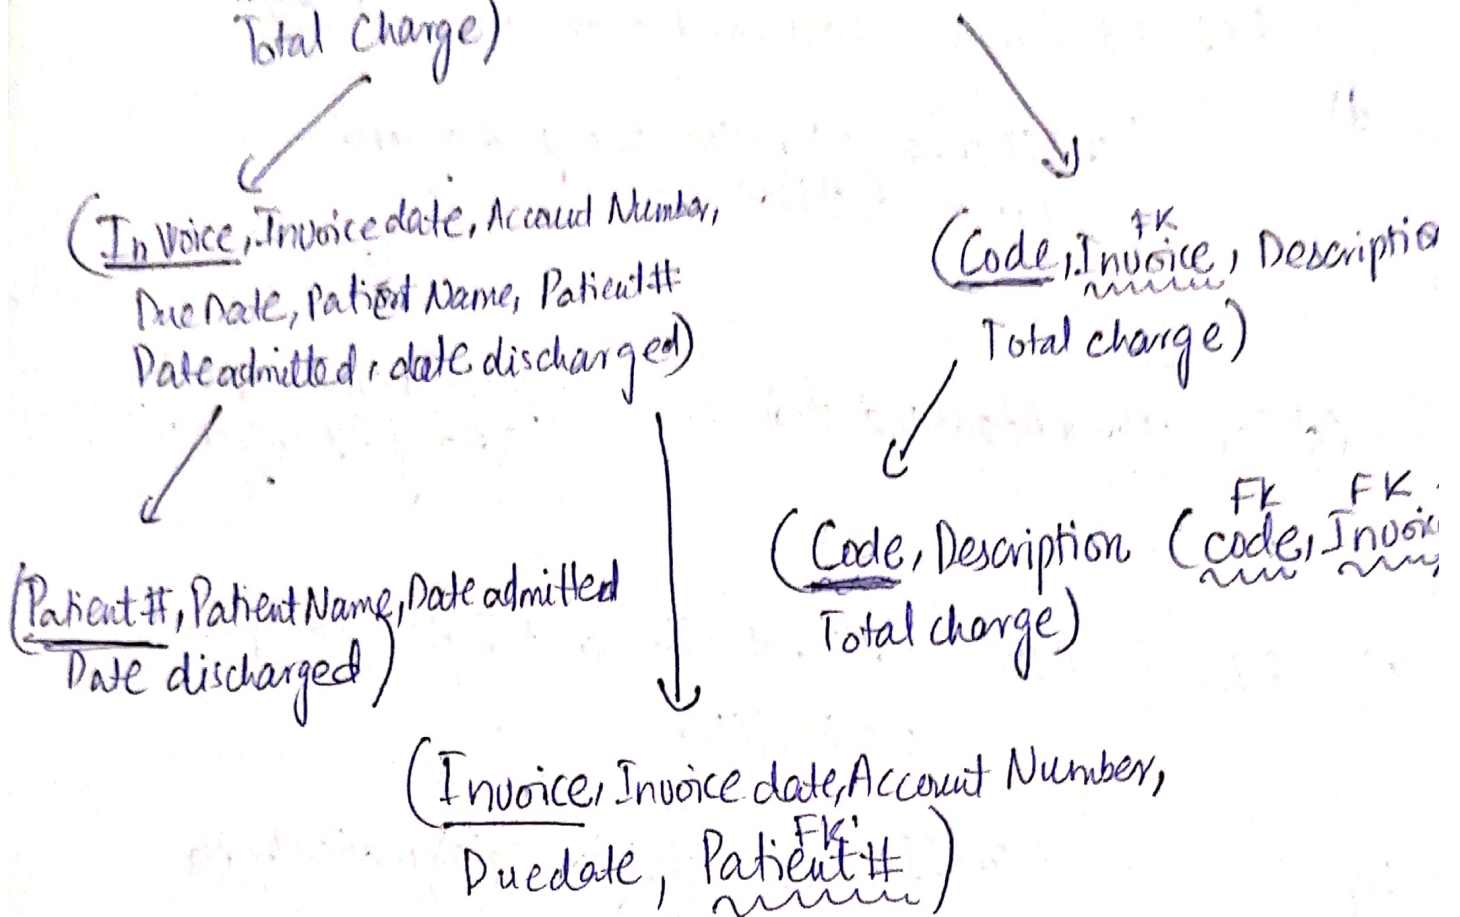 Total Charge)
(Invoice, Invoice date, Account Number,
Due Date, Patient Name, Patient#
Date admitted, date discharged)
FK
(Code, Invoice, Descriptio
Total charge)
(Patient#, Patient Name, Date admitted
Date discharged)
FK FK
(Code, Description (code, Invoic
Total charge)
(Invoice, Invoice date, Account Number,
FK
Duedate, Patient#)